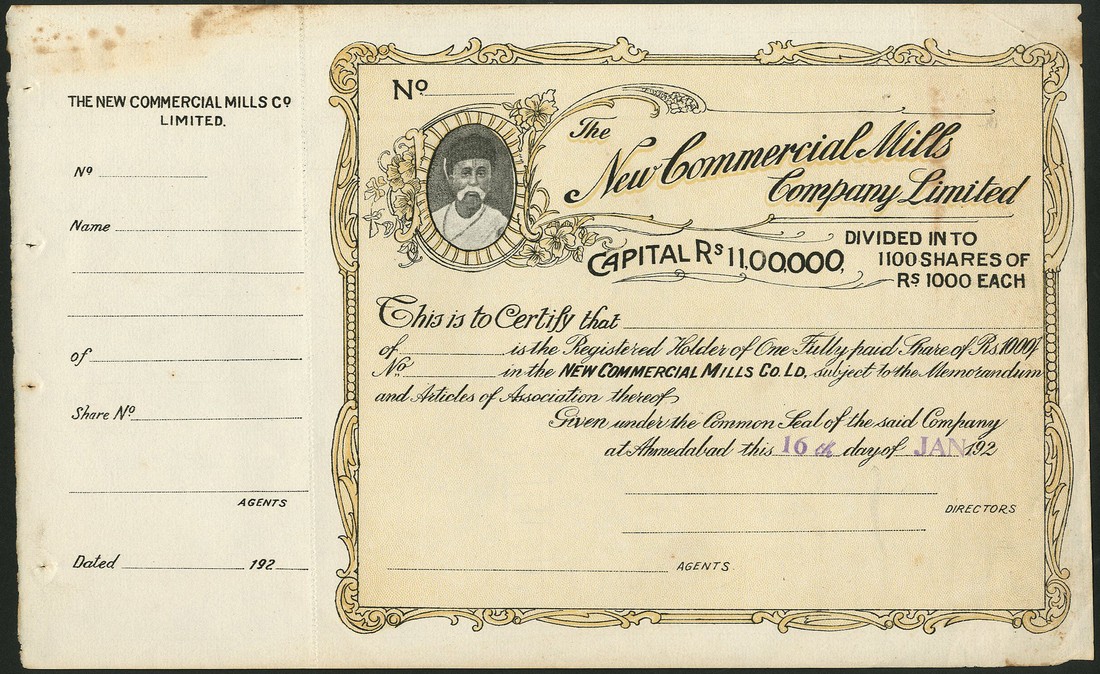 THE NEW COMMERCIAL MILLS Cº
LIMITED.
Nº
Name
of
Share Nº
AGENTS
Dated 192
Nº
The
New Commercial Mills
Company Limited
CAPITAL Rs 11,00,000,
DIVIDED INTO
1100 SHARES OF
Rs 1000 EACH
This is to Certify that
of is the Registered Holder of One Fully paid Share of Rs.1000/
Nº in the NEW COMMERCIAL MILLS CO. LD., subject to the Memorandum
and Articles of Association thereof
Given under the Common Seal of the said Company
at Ahmedabad this 16 th day of JAN 192
DIRECTORS
AGENTS.